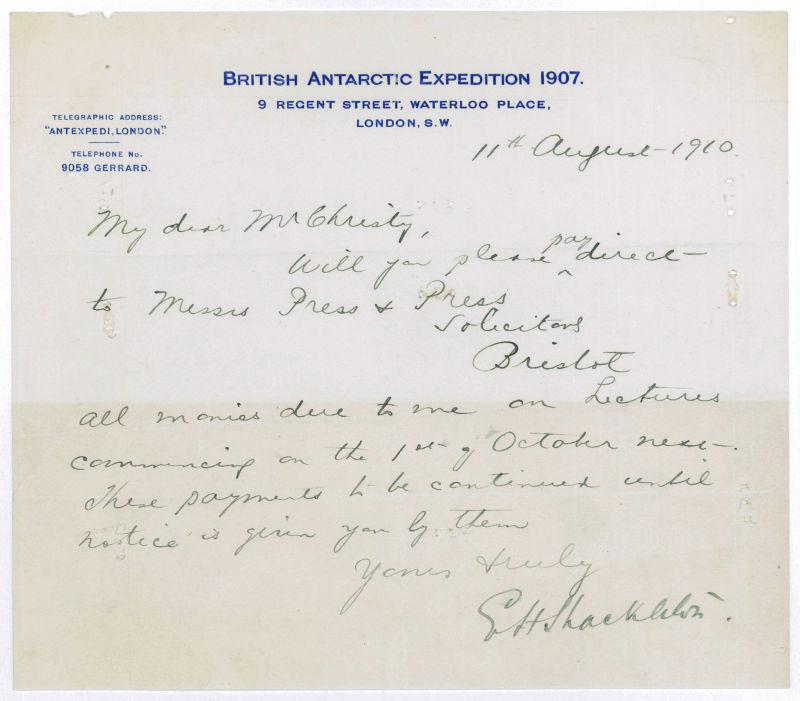 BRITISH ANTARCTIC EXPEDITION 1907.
9 REGENT STREET, WATERLOO PLACE,
LONDON, S.W.
TELEGRAPHIC ADDRESS:
"ANTEXPEDI, LONDON."
TELEPHONE No.
9058 GERRARD.
11th August 1910.
My dear Mr Christy,
Will you please pay direct
to Messrs Press & Press
Solicitors
Bristol
all monies due to me on Lectures
commencing on the 1st of October next.
These payments to be continued until
notice is given you by them
Yours truly
E H Shackleton.